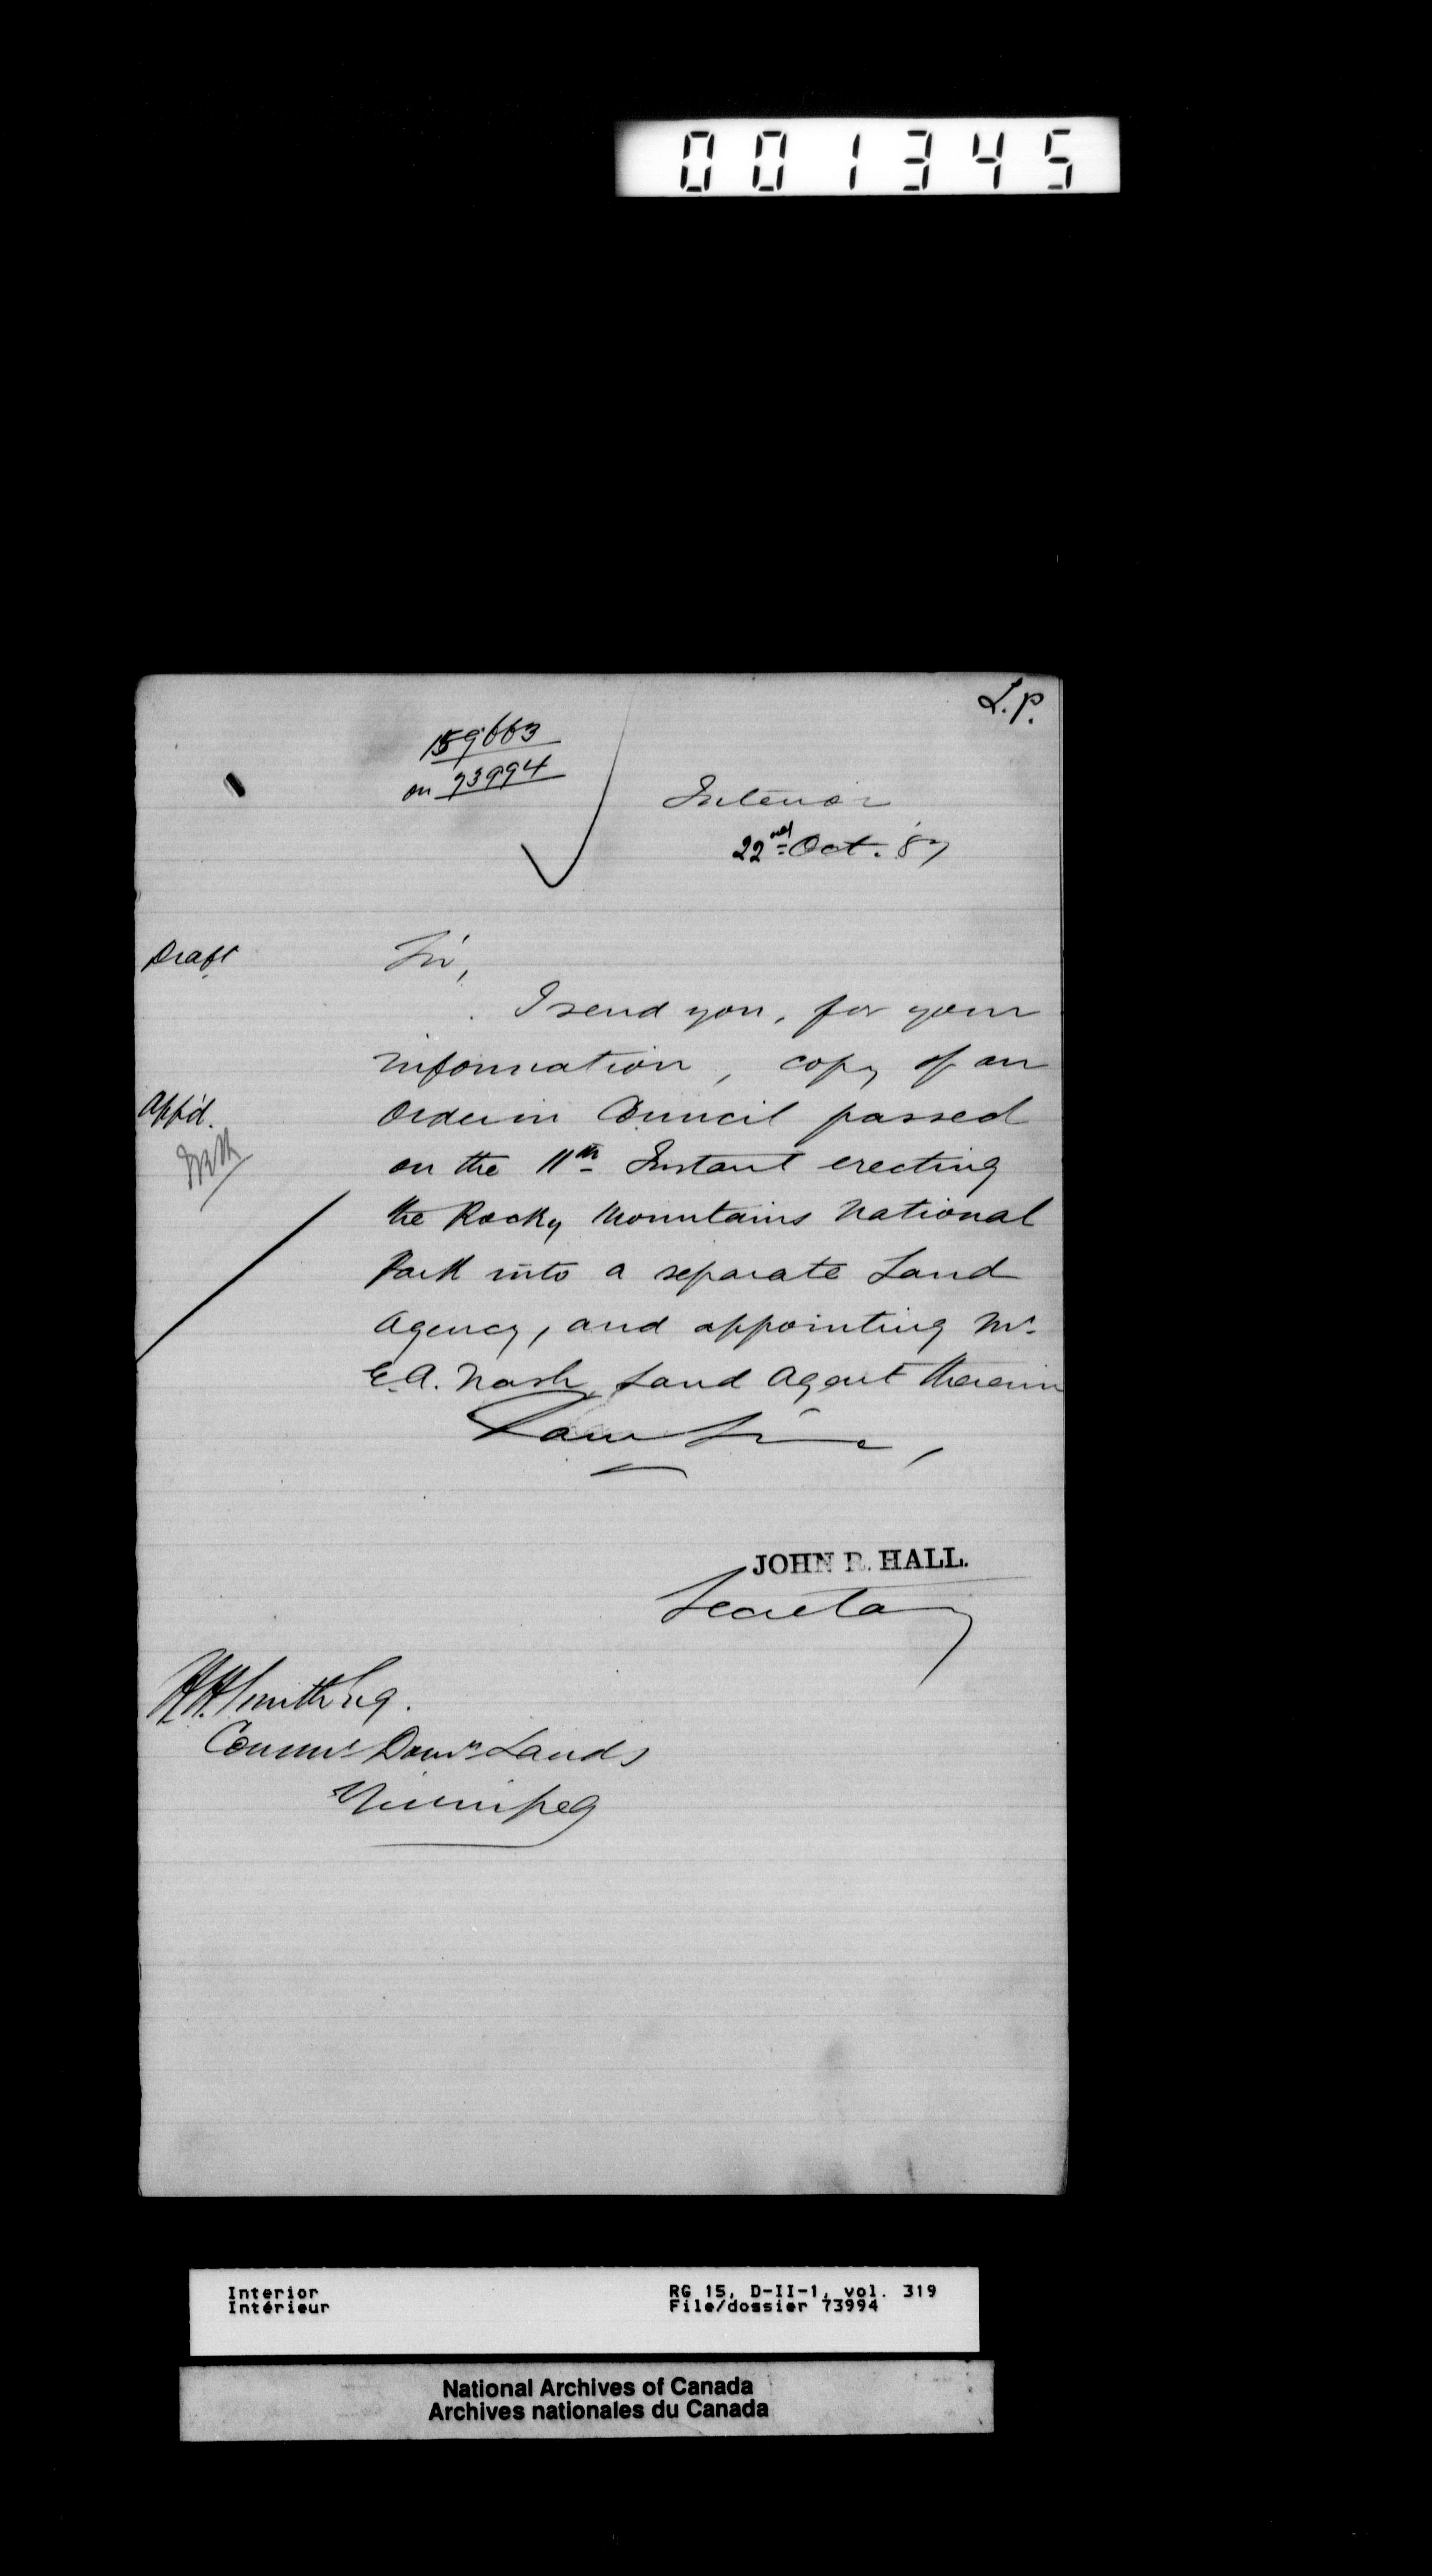 001345
L.P.
159663
on 73994
Interior
22nd Oct. 87
Draft
Sir,
I send you, for your
information, copy of an
App'd.
Order in Council passed
on the 11th Instant erecting
the Rocky Mountains National
Park into a separate Land
Agency, and appointing Mr.
E.A. Nash Land Agent therein
JOHN R. HALL.
Secretary
H.H. Smith Esq.
Commr Domn Lands
Winnipeg
Interior
Intérieur
RG 15, D-II-1, vol. 319
File/dossier 73994
National Archives of Canada
Archives nationales du Canada